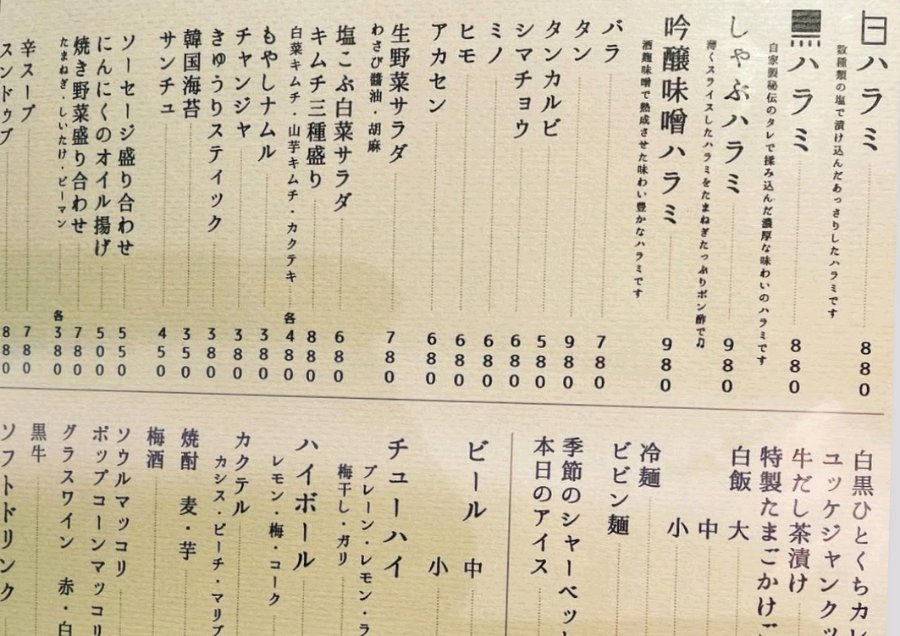 白ハラミ 880
数種類の塩で漬け込んだあっさりしたハラミです
黒ハラミ 880
自家製秘伝のタレで揉み込んだ濃厚な味わいのハラミです
しゃぶハラミ 980
薄くスライスしたハラミをたまねぎたっぷりポン酢で♫
吟醸味噌ハラミ 980
酒麹味噌で熟成させた味わい豊かなハラミです
バラ 780
タン 980
タンカルビ 580
シマチョウ 680
ミノ 680
ヒモ 680
アカセン 680
生野菜サラダ 780
わさび醬油・胡麻
塩こぶ白菜サラダ 680
キムチ三種盛り 880
白菜キムチ・山芋キムチ・カクテキ 各480
もやしナムル 380
チャンジャ 380
きゅうりスティック 380
韓国海苔 350
サンチュ 450
ソーセージ盛り合わせ 550
にんにくのオイル揚げ 500
焼き野菜盛り合わせ 780
たまねぎ・しいたけ・ピーマン 各380
辛スープ 780
スンドゥブ 880
白黒ひとくちカレ
ユッケジャンクッ
牛だし茶漬け
特製たまごかけご
白飯 大
中
小
冷麺
ビビン麺
季節のシャーベッ
本日のアイス
ビール 中
小
チューハイ
プレーン・レモン・ラ
梅干し・ガリ
ハイボール
レモン・梅・コーク
カクテル
カシス・ピーチ・マリブ
焼酎 麦・芋
梅酒
ソウルマッコリ
ポップコーンマッコリ
グラスワイン 赤・白
黒牛
ソフトドリンク